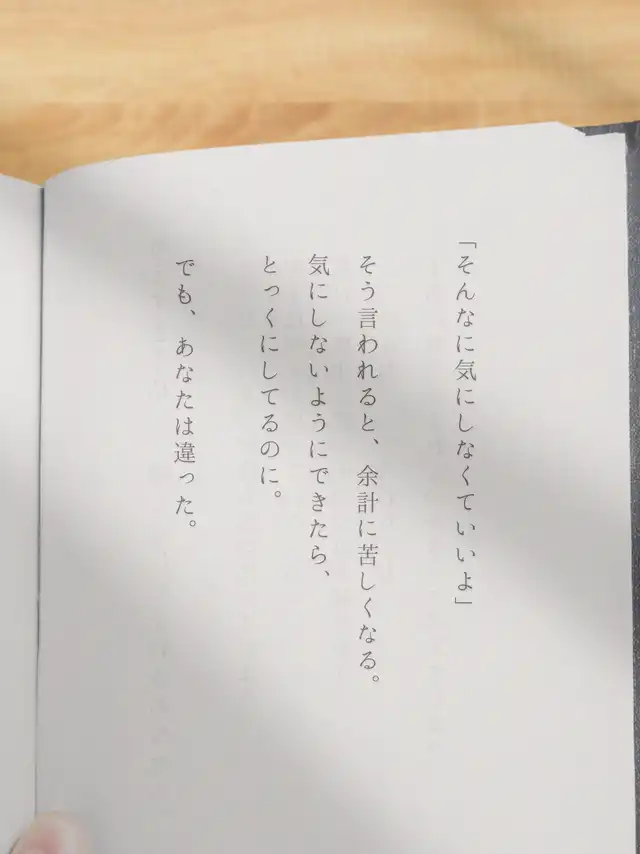 「そんなに気にしなくていいよ」
そう言われると、余計に苦しくなる。
気にしないようにできたら、
とっくにしてるのに。
でも、あなたは違った。